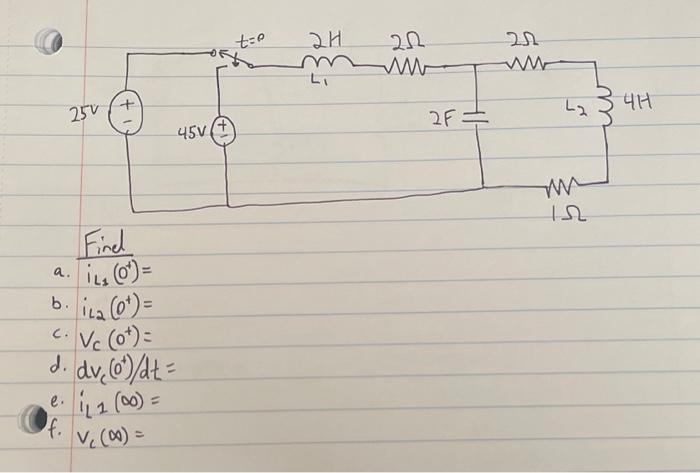 t=0 2H 2Ω 2Ω
L1
25V + -
45V + -
2F
L2 4H
1Ω
Find
a. iL1(0⁺)=
b. iL2(0⁺)=
c. Vc(0⁺)=
d. dvc(0⁺)/dt=
e. iL2(∞)=
f. Vc(∞)=